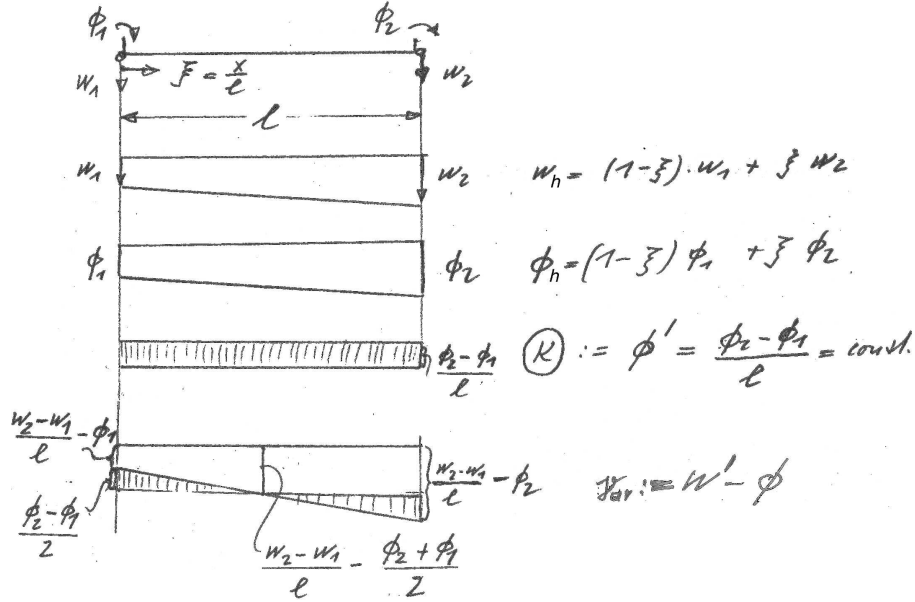 ϕ₁ ϕ₂
w₁ ξ = x/l w₂
l
w₁ w₂ w_h = (1-ξ)·w₁ + ξ w₂
ϕ₁ ϕ₂ ϕ_h = (1-ξ) ϕ₁ + ξ ϕ₂
(ϕ₂-ϕ₁)/l K := ϕ' = (ϕ₂-ϕ₁)/l = const.
(w₂-w₁)/l - ϕ₁ (w₂-w₁)/l - ϕ₂ γ_av := w' - ϕ
(ϕ₂-ϕ₁)/2
(w₂-w₁)/l - (ϕ₂+ϕ₁)/2